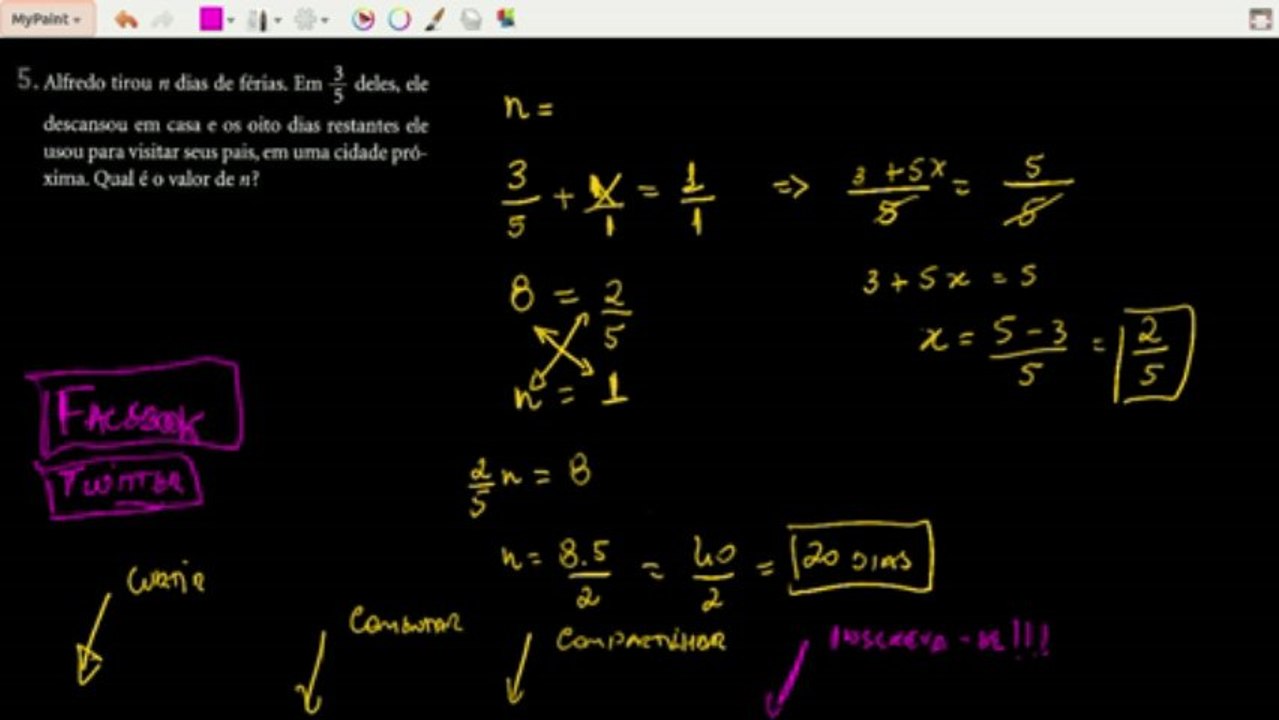 MyPaint
5. Alfredo tirou n dias de férias. Em 3/5 deles, ele
descansou em casa e os oito dias restantes ele
usou para visitar seus pais, em uma cidade pró-
xima. Qual é o valor de n?
n =
3/5 + x/1 = 1/1 => 3 + 5x/5 = 5/5
8 = 2/5
3 + 5x = 5
x = 5 - 3/5 = 2/5
n = 1
FACEBOOK
TWITTER
2/5 n = 8
n = 8.5/2 = 40/2 = 20 DIAS
CURTIR
COMENTAR
COMPARTILHAR
INSCREVA-SE!!!